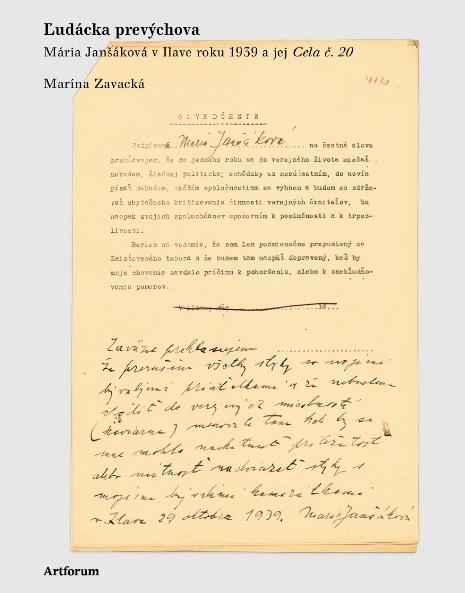 Ľudácka prevýchova
Mária Janšáková v Ilave roku 1939 a jej Cela č. 20
Marína Zavacká
O S V E D Č E N I E
Podpísaná Mária Janšáková na čestné slovo
prehlasujem, že do jedného roku sa do verejného života miešať
nebudem, žiadnej politickej schôdzky sa nezúčastním, do novín
písať nebudem, väčším spoločnostiam sa vyhnem a budem sa zdržo-
vať zbytočného kritizovania činnosti verejných činiteľov, ba
naopak svojich spoluobčanov upozorním k poslušnosti a k trpez-
livosti.
Beriem na vedomie, že som len podmienečne prepustený zo
Zaisťovacieho tábora a že budem tam nazpäť dopravený, keď by
moje chovanie zavdalo príčinu k pohoršeniu, alebo k znekľudňo-
vaniu pomerov.
V Ilave, dňa 19
Záväzne prehlasujem
že preruším všetky styky so svojimi
bývalými priateľkami a že nebudem
chodiť do verejných miestností
(kaviarne) menovite tam kde by sa
mne mohla naskytnúť príležitosť
alebo nútnosť nadviazať styky s
mojími bývalými kamarátkami
v Ilave 29 októbra 1939. Mária Janšáková
Artforum